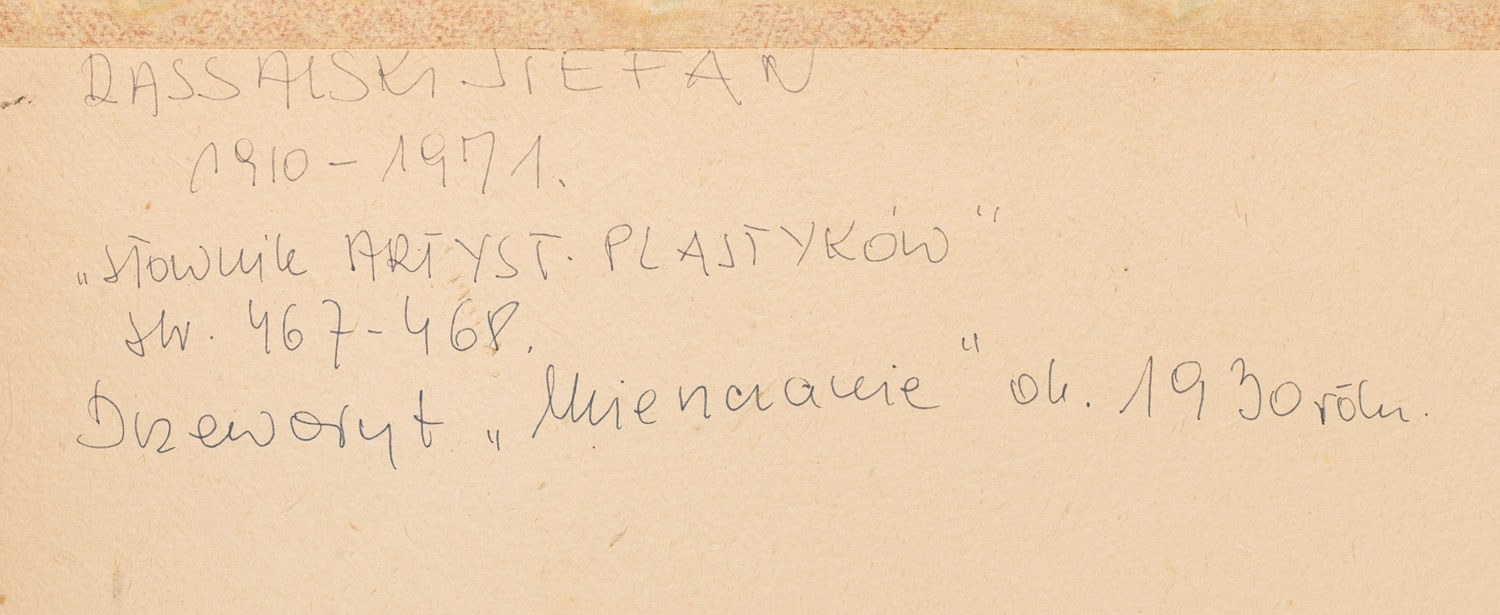 RASSALSKI STEFAN
1910 - 1971.
„Słownik ARTYST. PLASTYKÓW"
str. 467-468.
Drzeworyt ok. 1930 roku.